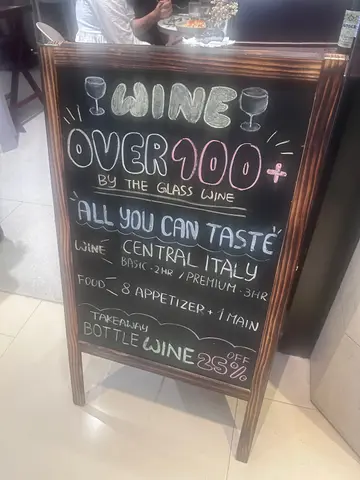 WINE
OVER 100+
BY THE GLASS WINE
"ALL YOU CAN TASTE"
WINE CENTRAL ITALY
BASIC - 2HR / PREMIUM - 3HR
FOOD 8 APPETIZER + 1 MAIN
TAKEAWAY
BOTTLE WINE 25% OFF